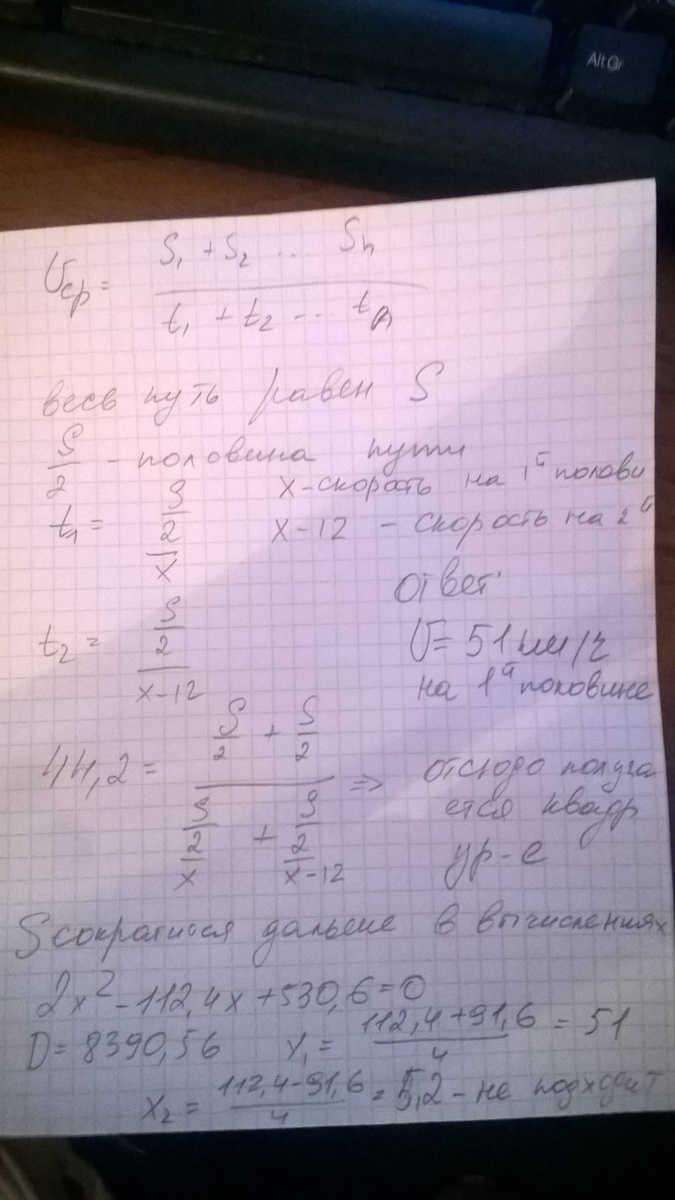 Alt Gr
Uср = (S₁ + S₂ ... Sn) / (t₁ + t₂ ... tn)
весь путь равен S
S/2 - половина пути
x - скорать на 1й полови
t₁ = (S/2)/x
x - 12 - скорость на 2й
ответ:
t₂ = (S/2)/(x-12)
U = 51 км/ч
на 1й половине
44,2 = (S/2 + S/2) / ((S/2)/x + (S/2)/(x-12)) =>
отсюдо получа
ется квадр
ур-е
S сократися дальше в вычислениях
2x² - 112,4x + 530,6 = 0
D = 8390,56 x₁ = (112,4 + 91,6)/4 = 51
x₂ = (112,4 - 91,6)/4 = 5,2 - не подходит